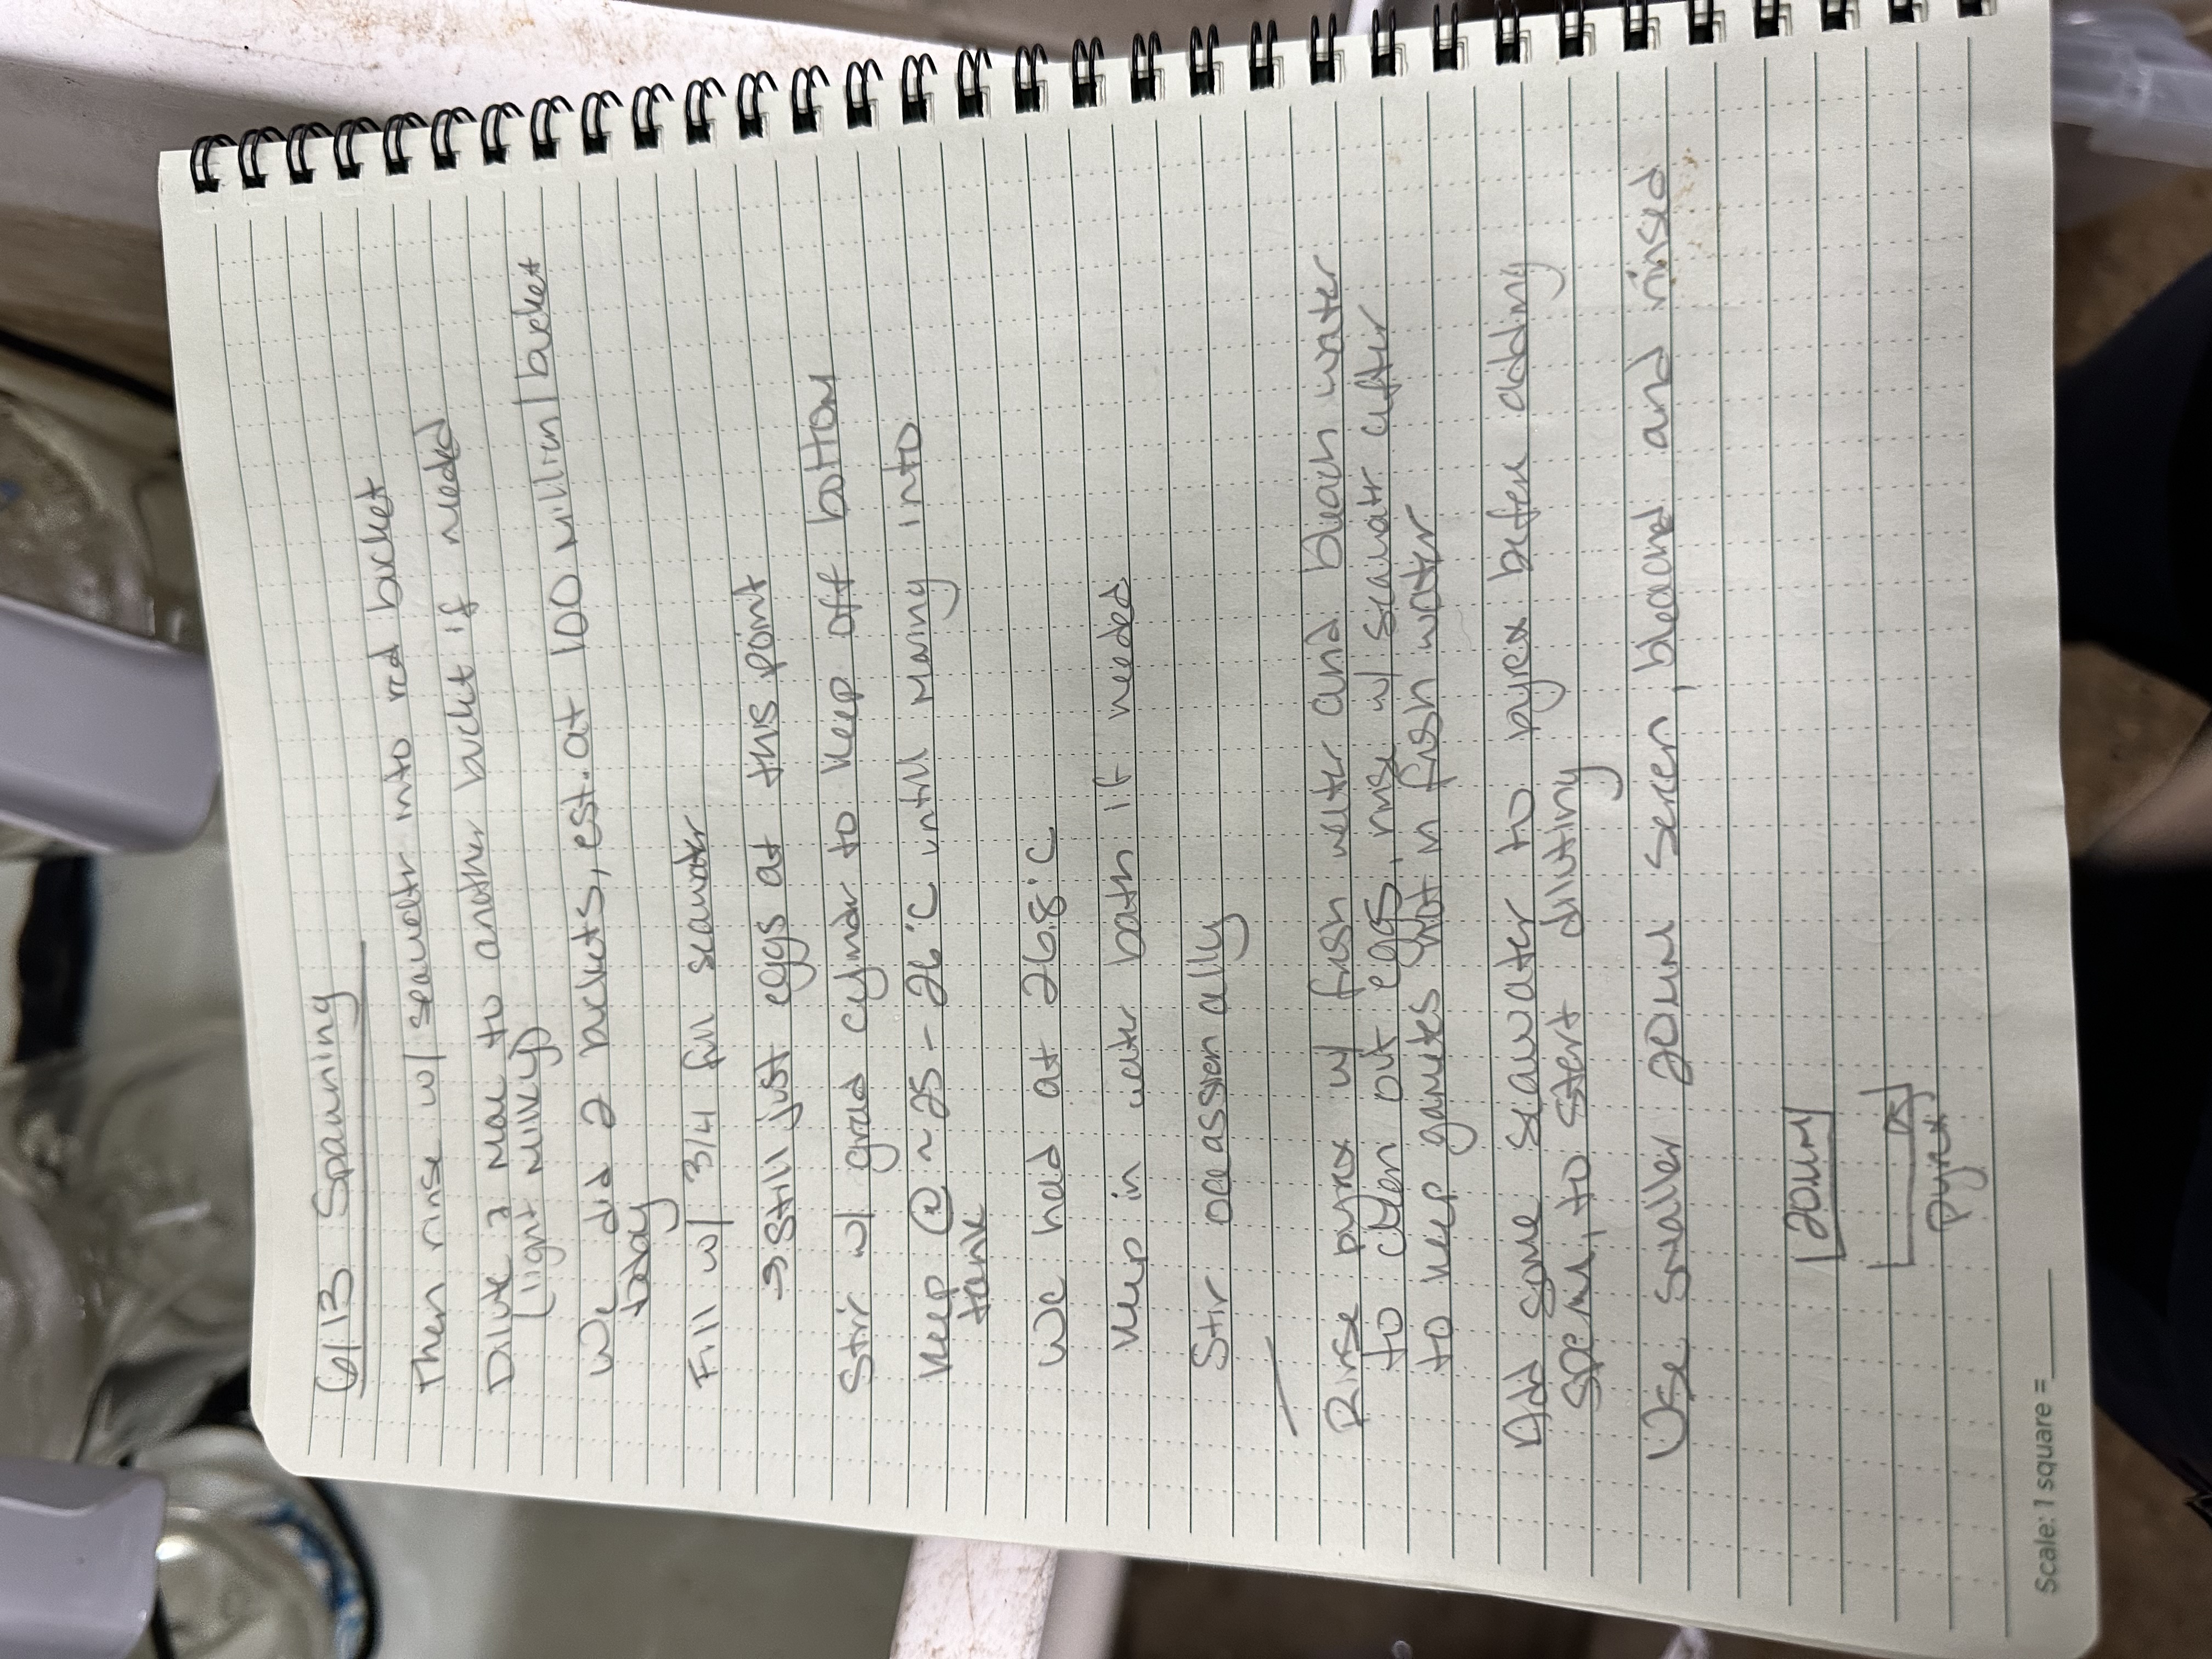 6/13 Spawning
Then rinse w/ seawatr into red bucket
Dilute & Move to another bucket if needed
(light Milky)
We did 2 buckets, est. at 100 Million/bucket
today
Fill w/ 3/4 full seawater
→ Still just eggs at this point
Stir w/ grad cylindr to keep off bottom
Keep @ ~25 - 26°C untill Moving into
tank
We had at 26.8°C
Keep in water bath if needed
Stir occassionally
Rinse pyrex w/ fresh water and bleach water
to clean out eggs, rinse w/ seawatr after
to keep gametes not in fresh water
Add some seawater to pyrex before adding
sperm, to start diluting
Use smaller 20um screen, bleached and rinsed
20um
pyrex
Scale: 1 square =